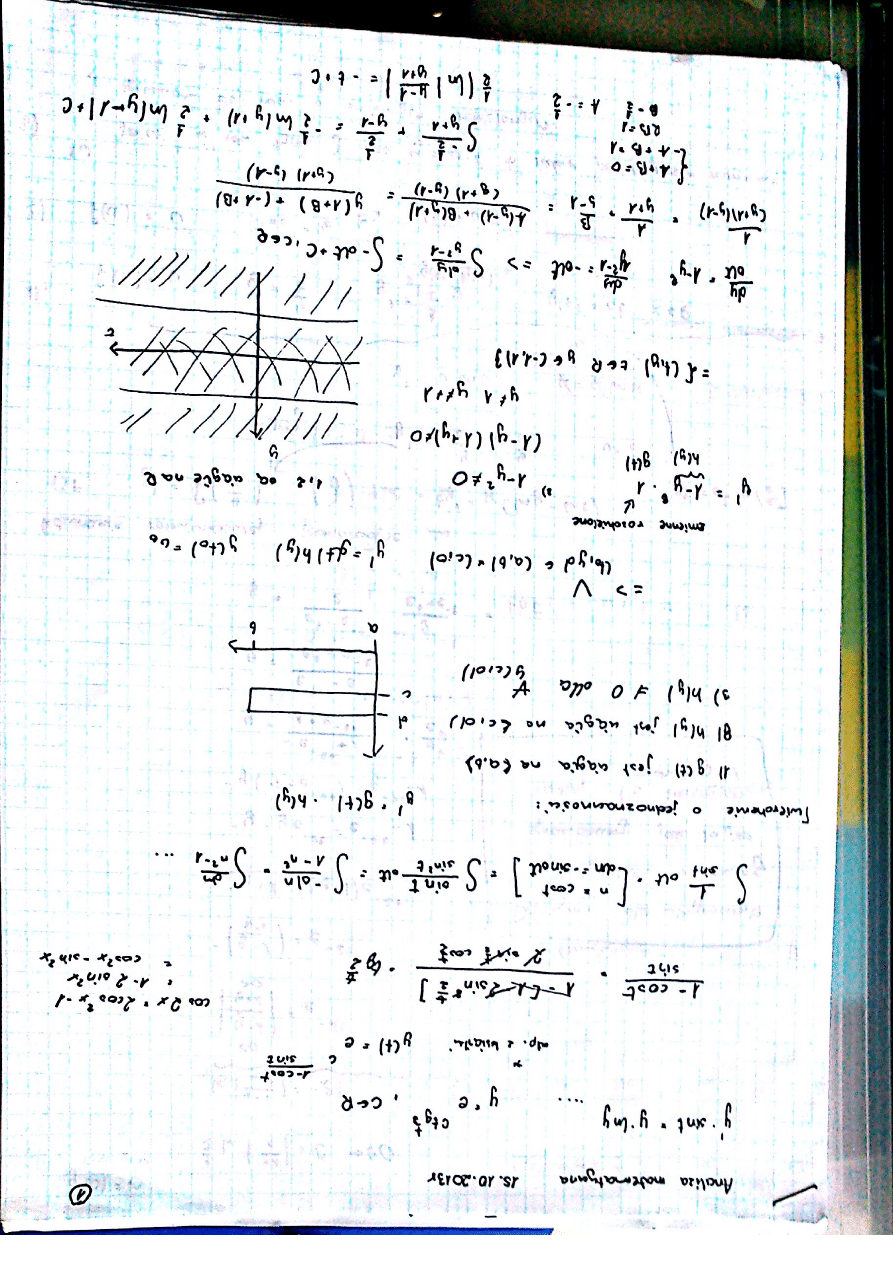 Analiza matematyczna 15.10.2013r
①
y' · sint = y · lny .... y = e^{c tg t/2} , C∈R
odp. z książki y(t) = e^{c (1-cost)/sint}
(1-cost)/sint = (1-[1-2sin² t/2])/(2 sin t/2 cos t/2) = tg t/2
cos2x = 2cos²x-1
= 1-2sin²x
= cos²x-sin²x
∫ 1/sint dt = [n = cost dn = -sint dt] = ∫ sint/sin²t dt = ∫ -dn/(1-n²) = ∫ dn/(n²-1) ...
Twierdzenie o jednoznaczności: y' = g(t) · h(y)
1) g(t) jest ciągła na (a,b)
2) h(y) jest ciągła na (c,d)
3) h(y) ≠ 0 dla ∀ y∈(c,d)
d
c
a b
=> ∨
(t0,y0) ∈ (a,b) × (c,d) y' = g(t) h(y) y(t0) = y0
zmienne rozdzielone
y' = 1-y² · 1
h(y) g(t)
3) 1-y² ≠ 0
1,2 są ciągłe na R
(1-y) (1+y) ≠ 0
y≠1 y≠-1
= {(t,y) t∈R y∈(-1,1)}
y
t
dy/dt = 1-y² dy/(y²-1) = -dt => ∫ dy/(y²-1) = ∫ -dt + C, C∈R
1/((y+1)(y-1)) = A/(y+1) + B/(y-1) = (A(y-1) + B(y+1))/((y+1)(y-1)) = (y(A+B) + (-A+B))/((y+1)(y-1))
{A+B=0
-A+B=1
2B=1
B=1/2 A=-1/2
∫ (-1/2)/(y+1) + (1/2)/(y-1) = -1/2 ln|y+1| + 1/2 ln|y-1| + C
1/2 |ln| (y-1)/(y+1) | = -t + C